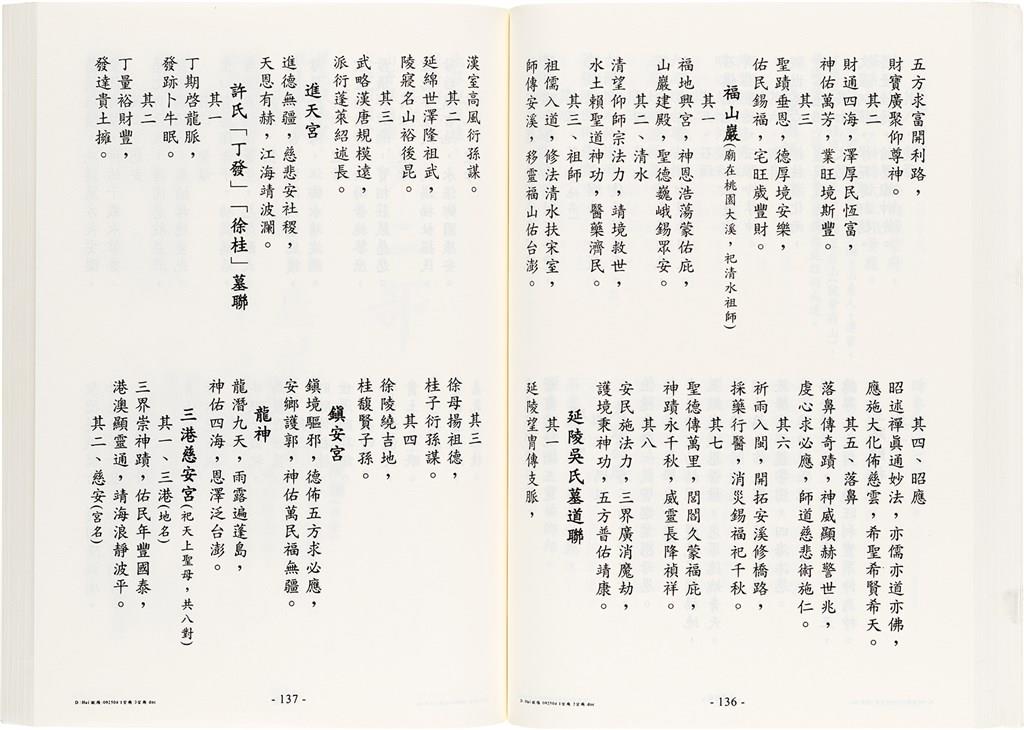 五方求富開利路，
財寶廣聚仰尊神。
其二
財通四海，澤厚民恆富，
神佑萬芳，業旺境斯豐。
其三
聖蹟垂恩，德厚境安樂，
佑民錫福，宅旺歲豐財。
福山巖(廟在桃園大溪，祀清水祖師)
其一
福地興宮，神恩浩蕩蒙佑庇，
山巖建殿，聖德巍峨錫眾安。
其二、清水
清望仰師宗法力，靖境救世，
水土賴聖道神功，醫藥濟民。
其三、祖師
祖儒入道，修法清水扶宋室，
師傳安溪，移靈福山佑台澎。
其四、昭應
昭述禪真通妙法，亦儒亦道亦佛，
應施大化佈慈雲，希聖希賢希天。
其五、落鼻
落鼻傳奇蹟，神威顯赫警世兆，
虔心求必應，師道慈悲術施仁。
其六
祈雨入閩，開拓安溪修橋路，
採藥行醫，消災錫福祀千秋。
其七
聖德傳萬里，閭閻久蒙福庇，
神蹟永千秋，威靈長降禎祥。
其八
安民施法力，三界廣消魔劫，
護境秉神功，五方普佑靖康。
延陵吳氏墓道聯
其一
延陵望胄傳支脈，
- 136 -
D:\Hui 敬陽 092504 1宮廟 2宮廟.doc
漢室高風衍孫謀。
其二
延綿世澤隆祖武，
陵寢名山裕後昆。
其三
武略漢唐規模遠，
派衍蓬萊紹述長。
進天宮
進德無疆，慈悲安社稷，
天恩有赫，江海靖波瀾。
許氏「丁發」「徐桂」墓聯
其一
丁期啓龍脈，
發跡卜牛眠。
其二
丁量裕財豐，
發達貴土擁。
其三
徐母揚祖德，
桂子衍孫謀。
其四
徐陵繞吉地，
桂馥賢子孫。
鎮安宮
鎮境驅邪，德佈五方求必應，
安鄉護郭，神佑萬民福無疆。
龍神
龍潛九天，雨露遍蓬島，
神佑四海，恩澤泛台澎。
三港慈安宮(祀天上聖母，共八對)
其一、三港(地名)
三界崇神蹟，佑民年豐國泰，
港澳顯靈通，靖海浪靜波平。
其二、慈安(宮名)
- 137 -